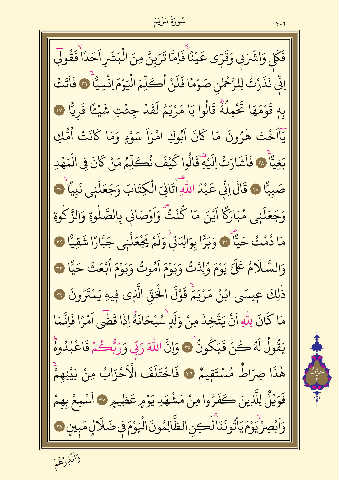 سُورَةُ مَرْيَمَ
فَكُلِي وَاشْرَبِي وَقَرِّي عَيْنًا فَإِمَّا تَرَيِنَّ مِنَ الْبَشَرِ أَحَدًا فَقُولِي
إِنِّي نَذَرْتُ لِلرَّحْمٰنِ صَوْمًا فَلَنْ أُكَلِّمَ الْيَوْمَ إِنْسِيًّا ﴿٢٦﴾ فَأَتَتْ
بِهِ قَوْمَهَا تَحْمِلُهُ قَالُوا يَا مَرْيَمُ لَقَدْ جِئْتِ شَيْئًا فَرِيًّا ﴿٢٧﴾
يَا أُخْتَ هٰرُونَ مَا كَانَ أَبُوكِ امْرَأَ سَوْءٍ وَمَا كَانَتْ أُمُّكِ
بَغِيًّا ﴿٢٨﴾ فَأَشَارَتْ إِلَيْهِ قَالُوا كَيْفَ نُكَلِّمُ مَنْ كَانَ فِي الْمَهْدِ
صَبِيًّا ﴿٢٩﴾ قَالَ إِنِّي عَبْدُ اللّٰهِ آتَانِيَ الْكِتَابَ وَجَعَلَنِي نَبِيًّا ﴿٣٠﴾
وَجَعَلَنِي مُبَارَكًا أَيْنَ مَا كُنْتُ وَأَوْصَانِي بِالصَّلٰوةِ وَالزَّكٰوةِ
مَا دُمْتُ حَيًّا ﴿٣١﴾ وَبَرًّا بِوَالِدَتِي وَلَمْ يَجْعَلْنِي جَبَّارًا شَقِيًّا ﴿٣٢﴾
وَالسَّلَامُ عَلَيَّ يَوْمَ وُلِدْتُ وَيَوْمَ أَمُوتُ وَيَوْمَ أُبْعَثُ حَيًّا ﴿٣٣﴾
ذٰلِكَ عِيسَى ابْنُ مَرْيَمَ قَوْلَ الْحَقِّ الَّذِي فِيهِ يَمْتَرُونَ ﴿٣٤﴾
مَا كَانَ لِلّٰهِ أَنْ يَتَّخِذَ مِنْ وَلَدٍ سُبْحَانَهُ إِذَا قَضٰى أَمْرًا فَإِنَّمَا
يَقُولُ لَهُ كُنْ فَيَكُونُ ﴿٣٥﴾ وَإِنَّ اللّٰهَ رَبِّي وَرَبُّكُمْ فَاعْبُدُوهُ
هٰذَا صِرَاطٌ مُسْتَقِيمٌ ﴿٣٦﴾ فَاخْتَلَفَ الْأَحْزَابُ مِنْ بَيْنِهِمْ
فَوَيْلٌ لِلَّذِينَ كَفَرُوا مِنْ مَشْهَدِ يَوْمٍ عَظِيمٍ ﴿٣٧﴾ أَسْمِعْ بِهِمْ
وَأَبْصِرْ يَوْمَ يَأْتُونَنَا لٰكِنِ الظَّالِمُونَ الْيَوْمَ فِي ضَلَالٍ مُبِينٍ ﴿٣٨﴾